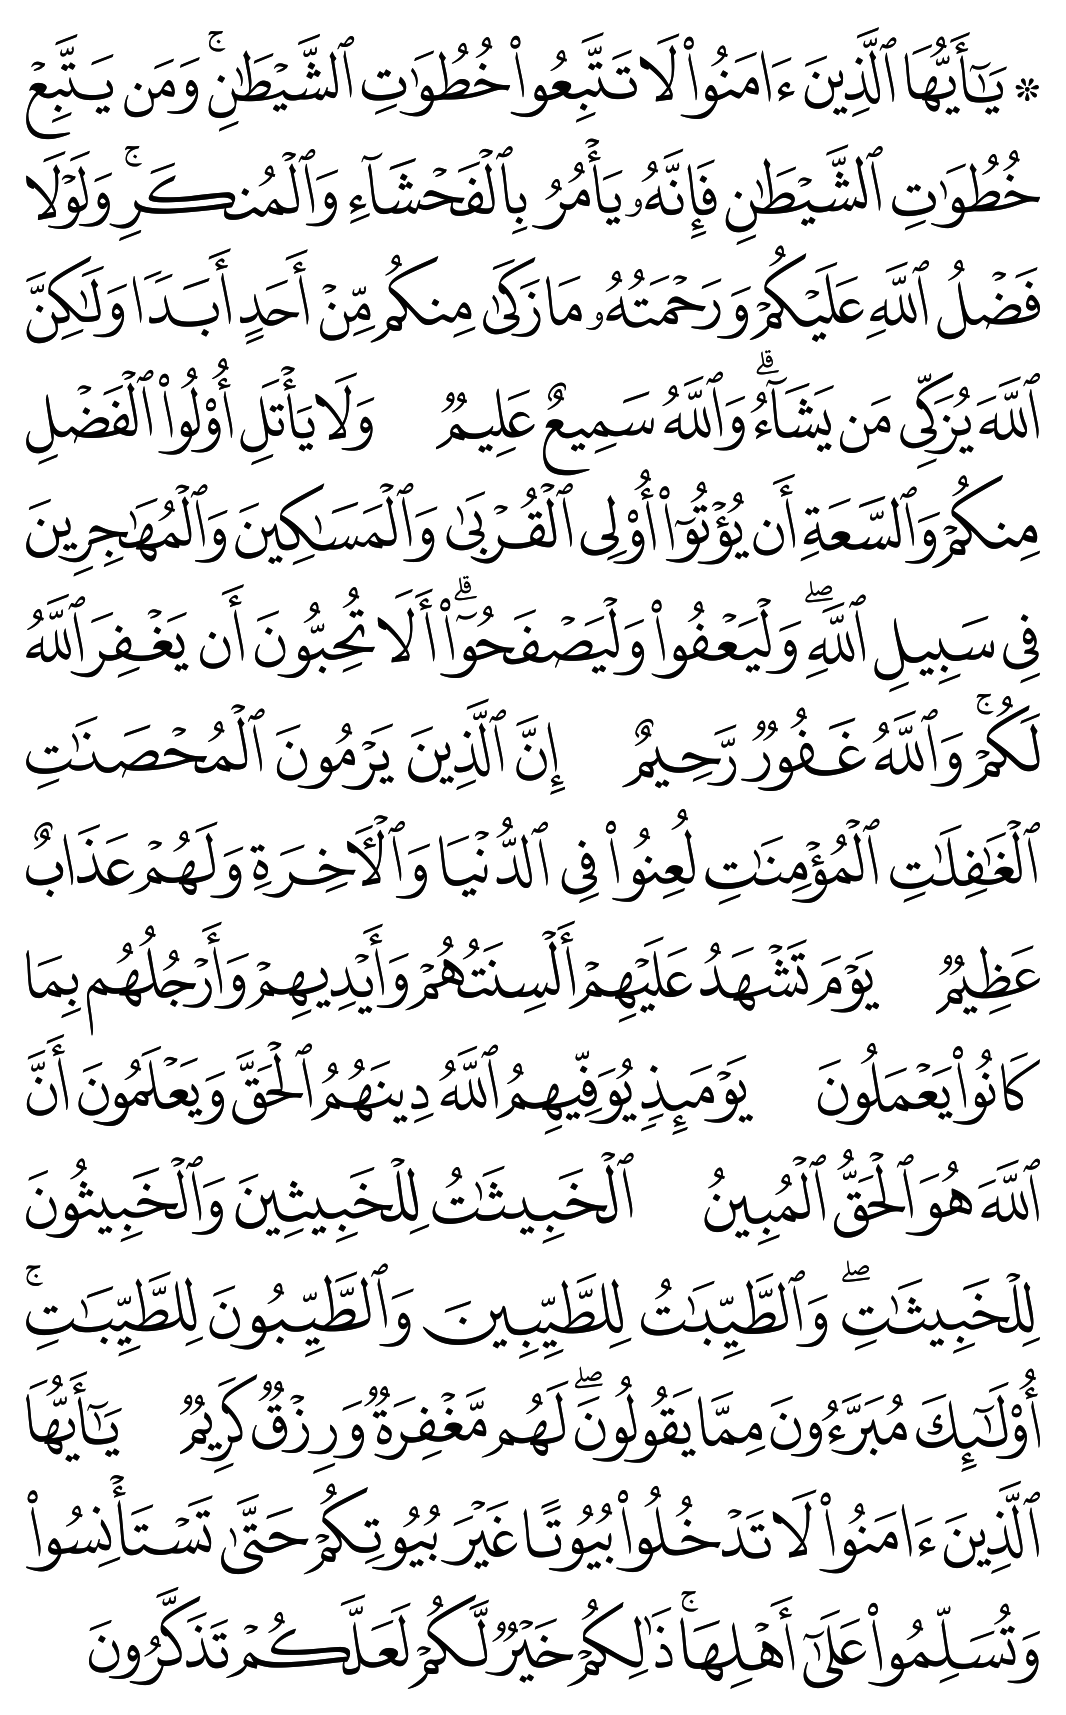 ۞ يَٰٓأَيُّهَا ٱلَّذِينَ ءَامَنُوا۟ لَا تَتَّبِعُوا۟ خُطُوَٰتِ ٱلشَّيْطَٰنِ ۚ وَمَن يَتَّبِعْ
خُطُوَٰتِ ٱلشَّيْطَٰنِ فَإِنَّهُۥ يَأْمُرُ بِٱلْفَحْشَآءِ وَٱلْمُنكَرِ ۚ وَلَوْلَا
فَضْلُ ٱللَّهِ عَلَيْكُمْ وَرَحْمَتُهُۥ مَا زَكَىٰ مِنكُم مِّنْ أَحَدٍ أَبَدًا وَلَٰكِنَّ
ٱللَّهَ يُزَكِّى مَن يَشَآءُ ۗ وَٱللَّهُ سَمِيعٌ عَلِيمٌ وَلَا يَأْتَلِ أُو۟لُوا۟ ٱلْفَضْلِ
مِنكُمْ وَٱلسَّعَةِ أَن يُؤْتُوٓا۟ أُو۟لِى ٱلْقُرْبَىٰ وَٱلْمَسَٰكِينَ وَٱلْمُهَٰجِرِينَ
فِى سَبِيلِ ٱللَّهِ ۖ وَلْيَعْفُوا۟ وَلْيَصْفَحُوٓا۟ ۗ أَلَا تُحِبُّونَ أَن يَغْفِرَ ٱللَّهُ
لَكُمْ ۚ وَٱللَّهُ غَفُورٌ رَّحِيمٌ إِنَّ ٱلَّذِينَ يَرْمُونَ ٱلْمُحْصَنَٰتِ
ٱلْغَٰفِلَٰتِ ٱلْمُؤْمِنَٰتِ لُعِنُوا۟ فِى ٱلدُّنْيَا وَٱلْءَاخِرَةِ وَلَهُمْ عَذَابٌ
عَظِيمٌ يَوْمَ تَشْهَدُ عَلَيْهِمْ أَلْسِنَتُهُمْ وَأَيْدِيهِمْ وَأَرْجُلُهُم بِمَا
كَانُوا۟ يَعْمَلُونَ يَوْمَئِذٍ يُوَفِّيهِمُ ٱللَّهُ دِينَهُمُ ٱلْحَقَّ وَيَعْلَمُونَ أَنَّ
ٱللَّهَ هُوَ ٱلْحَقُّ ٱلْمُبِينُ ٱلْخَبِيثَٰتُ لِلْخَبِيثِينَ وَٱلْخَبِيثُونَ
لِلْخَبِيثَٰتِ ۖ وَٱلطَّيِّبَٰتُ لِلطَّيِّبِينَ وَٱلطَّيِّبُونَ لِلطَّيِّبَٰتِ ۚ
أُو۟لَٰٓئِكَ مُبَرَّءُونَ مِمَّا يَقُولُونَ ۖ لَهُم مَّغْفِرَةٌ وَرِزْقٌ كَرِيمٌ يَٰٓأَيُّهَا
ٱلَّذِينَ ءَامَنُوا۟ لَا تَدْخُلُوا۟ بُيُوتًا غَيْرَ بُيُوتِكُمْ حَتَّىٰ تَسْتَأْنِسُوا۟
وَتُسَلِّمُوا۟ عَلَىٰٓ أَهْلِهَا ۚ ذَٰلِكُمْ خَيْرٌ لَّكُمْ لَعَلَّكُمْ تَذَكَّرُونَ